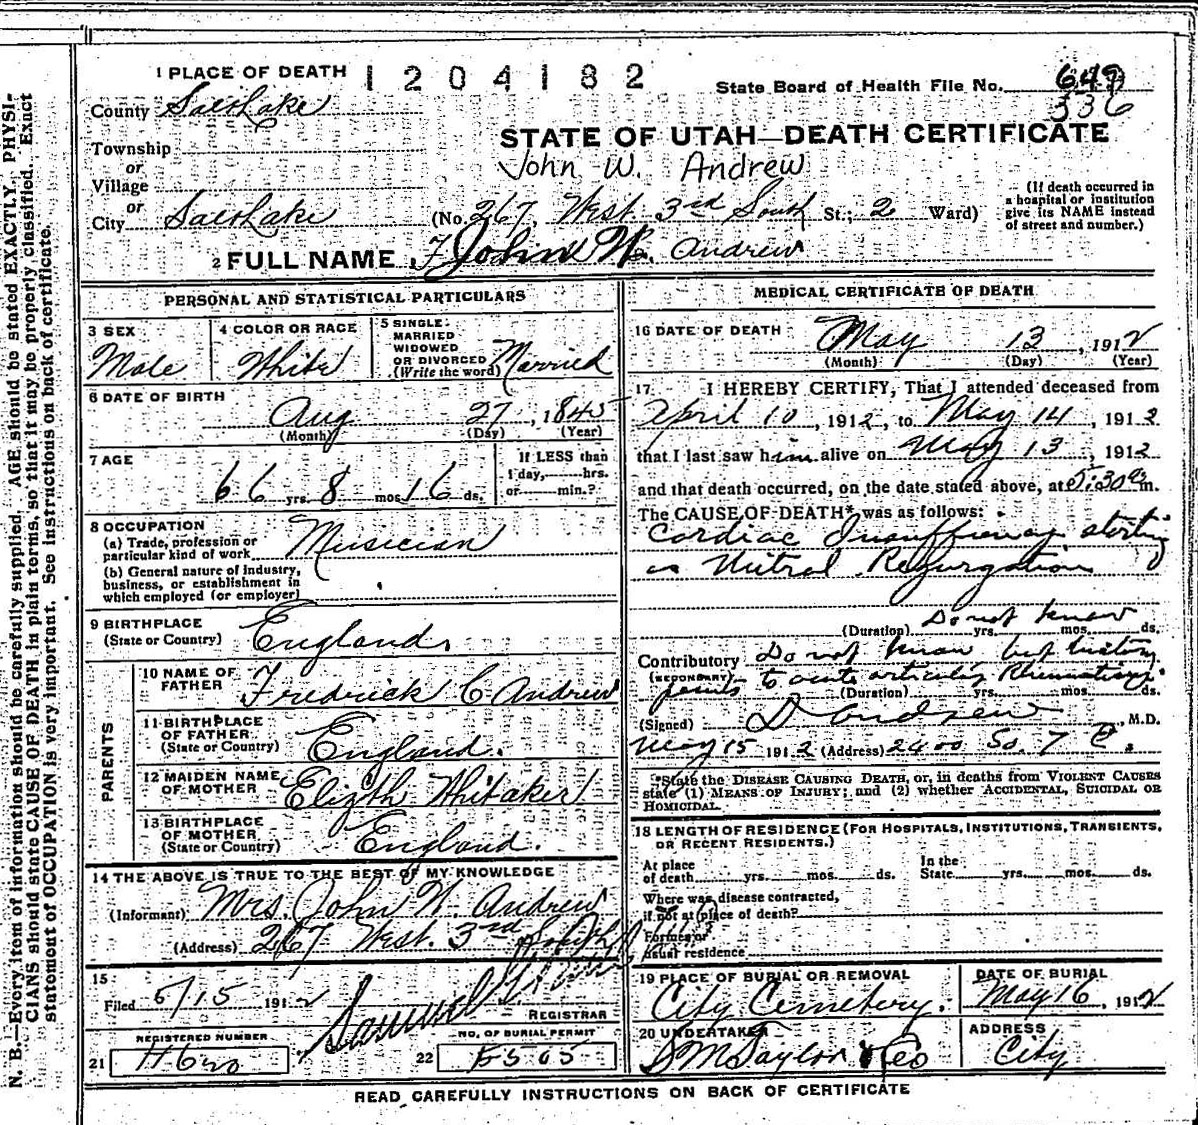 1 PLACE OF DEATH 1204182
State Board of Health File No. 649
336
County Salt Lake
STATE OF UTAH—DEATH CERTIFICATE
Township
or
John W. Andrew
Village
or
City Salt Lake (No. 267 West 3rd South St.; 2 Ward)
(If death occurred in
a hospital or institution
give its NAME instead
of street and number.)
2 FULL NAME John W. Andrew
PERSONAL AND STATISTICAL PARTICULARS
3 SEX
Male
4 COLOR OR RACE
White
5 SINGLE
MARRIED
WIDOWED
OR DIVORCED
(Write the word) Married
6 DATE OF BIRTH
Aug 27, 1845
(Month) (Day) (Year)
7 AGE
66 yrs. 8 mos. 16 ds.
If LESS than
1 day, hrs.
or min.?
8 OCCUPATION
(a) Trade, profession or
particular kind of work Musician
(b) General nature of industry,
business, or establishment in
which employed (or employer)
9 BIRTHPLACE
(State or Country) England.
PARENTS
10 NAME OF
FATHER Fredrick C Andrew
11 BIRTHPLACE
OF FATHER
(State or Country) England.
12 MAIDEN NAME
OF MOTHER Elizth Whitaker
13 BIRTHPLACE
OF MOTHER
(State or Country) England.
14 THE ABOVE IS TRUE TO THE BEST OF MY KNOWLEDGE
(Informant) Mrs. John W. Andrew
(Address) 267 West. 3rd South
15
Filed 5/15 1912
REGISTRAR
REGISTERED NUMBER
21
NO. OF BURIAL PERMIT
22 E5505
MEDICAL CERTIFICATE OF DEATH
16 DATE OF DEATH May 13, 1912
(Month) (Day) (Year)
17 I HEREBY CERTIFY, That I attended deceased from
April 10, 1912, to May 14, 1912
that I last saw him alive on May 13, 1912
and that death occurred, on the date stated above, at 5:30 a m.
The CAUSE OF DEATH* was as follows:
Cardiac Insufficiency starting
as Mitral Regurgation
Do not know
(Duration) yrs. mos. ds.
Contributory Do not know but history
(SECONDARY) points to acute articular Rheumatism.
(Duration) yrs. mos. ds.
(Signed) , M.D.
May 15 1912 (Address) 2400 So. 7 E.
*State the DISEASE CAUSING DEATH, or, in deaths from VIOLENT CAUSES
state (1) MEANS OF INJURY; and (2) whether ACCIDENTAL, SUICIDAL OR
HOMICIDAL.
18 LENGTH OF RESIDENCE (FOR HOSPITALS, INSTITUTIONS, TRANSIENTS,
OR RECENT RESIDENTS.)
At place
of death yrs. mos. ds.
In the
State yrs. mos. ds.
Where was disease contracted,
if not at place of death?
Former or
usual residence
19 PLACE OF BURIAL OR REMOVAL
City Cemetery.
DATE OF BURIAL
May 16, 1912
20 UNDERTAKER
S M Taylor & Co
ADDRESS
City
READ CAREFULLY INSTRUCTIONS ON BACK OF CERTIFICATE
N. B.—Every item of information should be carefully supplied. AGE should be stated EXACTLY. PHYSI-
CIANS should state CAUSE OF DEATH in plain terms, so that it may be properly classified. Exact
statement of OCCUPATION is very important. See instructions on back of certificate.